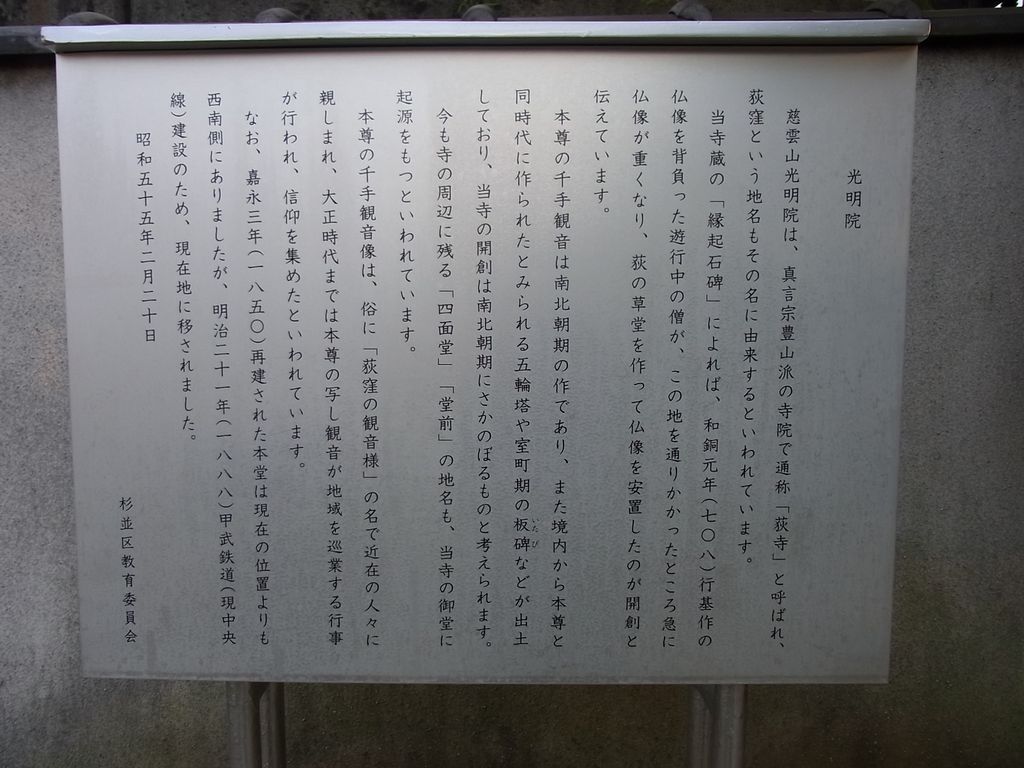 光明院
慈雲山光明院は、真言宗豊山派の寺院で通称「荻寺」と呼ばれ、
荻窪という地名もその名に由来するといわれています。
当寺蔵の「縁起石碑」によれば、和銅元年(七〇八)行基作の
仏像を背負った遊行中の僧が、この地を通りかかったところ急に
仏像が重くなり、荻の草堂を作って仏像を安置したのが開創と
伝えています。
本尊の千手観音は南北朝期の作であり、また境内から本尊と
同時代に作られたとみられる五輪塔や室町期の板碑などが出土
いたび
しており、当寺の開創は南北朝期にさかのぼるものと考えられます。
今も寺の周辺に残る「四面堂」「堂前」の地名も、当寺の御堂に
起源をもつといわれています。
本尊の千手観音像は、俗に「荻窪の観音様」の名で近在の人々に
親しまれ、大正時代までは本尊の写し観音が地域を巡業する行事
が行われ、信仰を集めたといわれています。
なお、嘉永三年(一八五〇)再建された本堂は現在の位置よりも
西南側にありましたが、明治二十一年(一八八八)甲武鉄道(現中央
線)建設のため、現在地に移されました。
昭和五十五年二月二十日
杉並区教育委員会